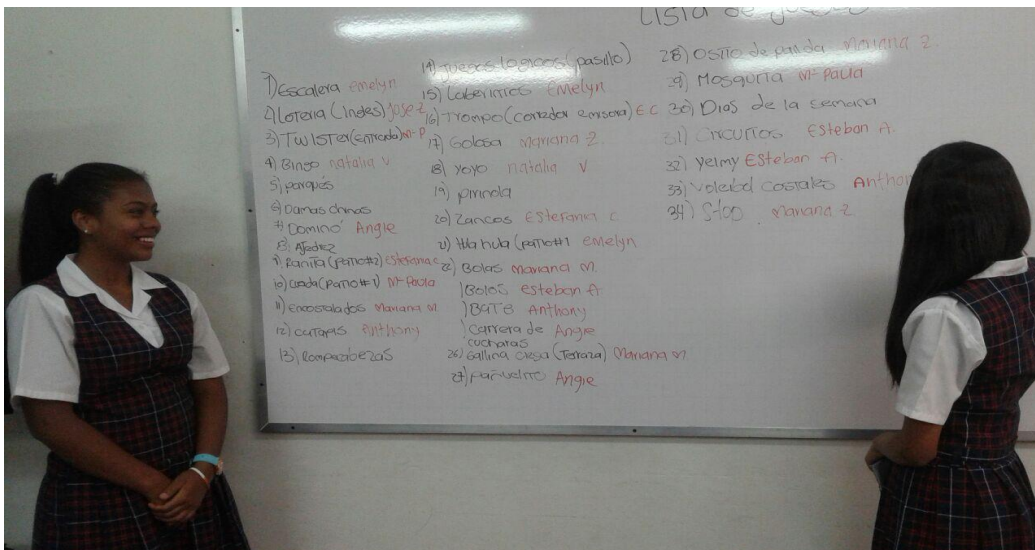 Lista de juegos
1) Escalera Emelyn
2) Loteria (Ingles) Jose Z
3) Twister (entrada) Mª P
4) Bingo natalia v
5) parques
6) Damas chinas
7) Domino Angie
8) Ajedrez
9) Ranita (patio#2) Estefania c
10) (patio#1) Mª Paula
11) encostalados Mariana M.
12) Anthony
13) Rompecabezas
14) Juegos Logicos (pasillo)
15) Laberintos Emelyn
16) Trompo (corredor emisora) E.C
17) Golosa Mariana Z.
18) yoyo natalia V
19) pirinola
20) Zancos Estefania C
21) Hula hula (patio#1) Emelyn
22) Bolas Mariana M.
) Bolos Esteban A
) Bate Anthony
) Carrera de Angie
cucharas
26) Gallina ciega (Terraza) Mariana M
27) pañuelito Angie
28) Osito de panda Mariana Z.
29) Mosquita Mª Paula
30) Dias de la semana
31) Circuitos Esteban A.
32) Yelmy Esteban A.
33) costales Anthon
34) Stop Mariana Z